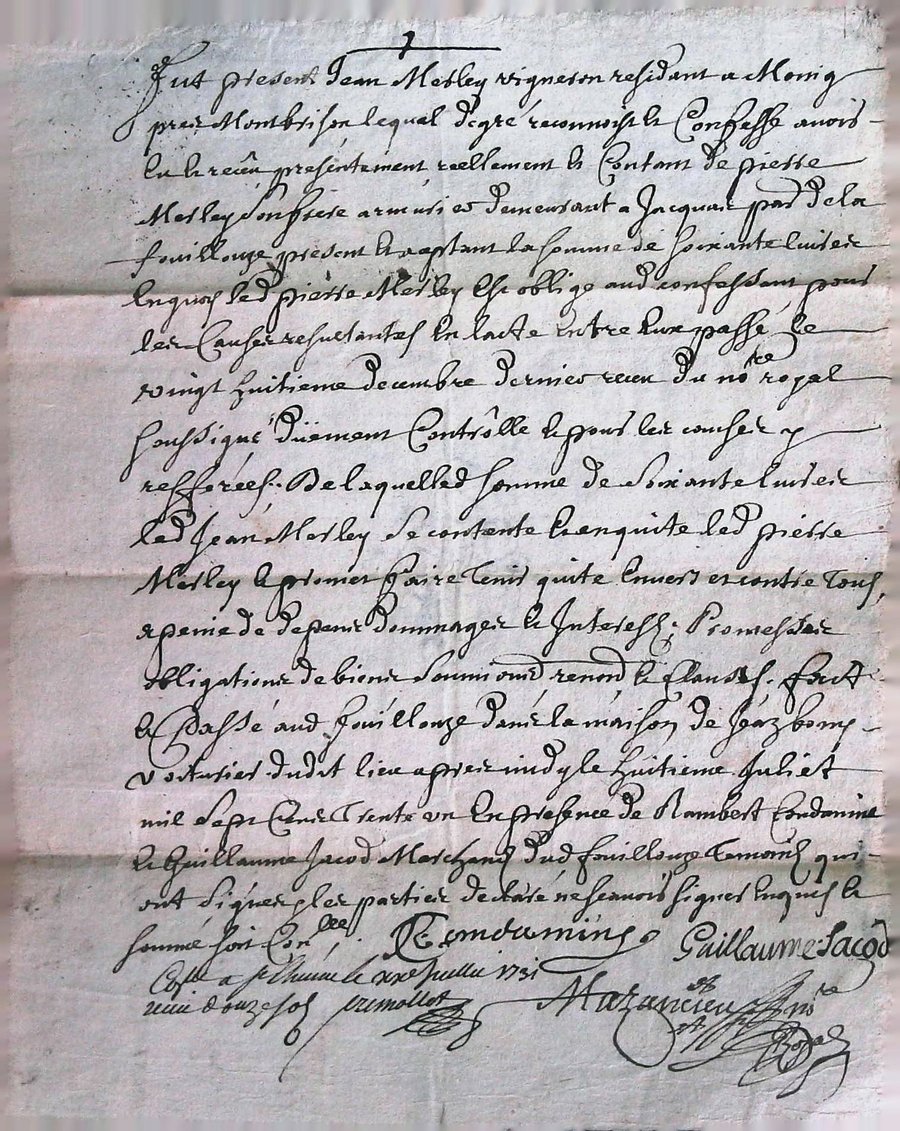 Fut present Jean Merley vigneron residant a Moing
pres Montbrison lequel de gré reconnoist et Confesse avoir
eu et receu presentement reellement et Contant de pierre
Merley son frere armurier demeurant a Jacquair par de la
fouillouze present et aceptant la somme de soixante livres
en quoy led pierre Merley est obligé aud confessant pour
les Causes resultantes en lacte entre eux passé le
vingt huitieme decembre dernier receu du no.re royal
soussigné düement Contrôlle et pour les causes y
refferées. De laquelled somme de Soixante livres
led Jean Merley se contente et en quite led pierre
Merley et promet faire tenir quite envers et contre tous,
a peine de depens dommages et Interests; Promesses
obligations de biens soumiond renond et Clauses. fait
et Passé aud fouillouze dans la maison de
voiturier dudit lieu apres midy le huitieme Juliet
mil sept Cens trente un en presence de Rambert Condamine
et Guillaume Jacod Marchand dud fouillouze temoins qui
ont signé, les parties declaré ne scavoir signer enquis et
sommé soit Con.llee. R Condamine Guillaume Jacod
1731
receu douze sol Mazancieu no.re
Royal